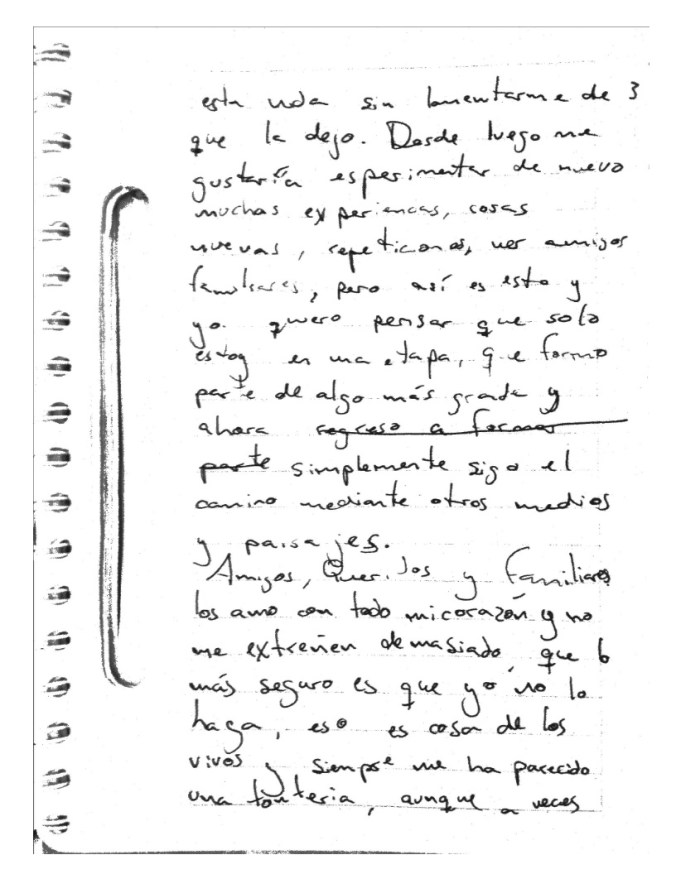 esta vida sin lamentarme de 3
que la dejo. Desde luego me
gustaría esperimentar de nuevo
muchas experiencas, cosas
nuevas, repeticiones, ver amigos
familiares, pero así es esto y
yo quiero pensar que solo
estoy en una etapa, que formo
parte de algo más grade y
ahora regreso a formar
parte simplemente sigo el
camino mediante otros medios
y paisajes.
Amigos, Queridos y Familiares
los amo con todo mi corazón y no
me extrañen demasiado, que lo
más seguro es que yo no lo
haga, eso es cosa de los
vivos y siempre me ha parecido
una tontería, aunque a veces